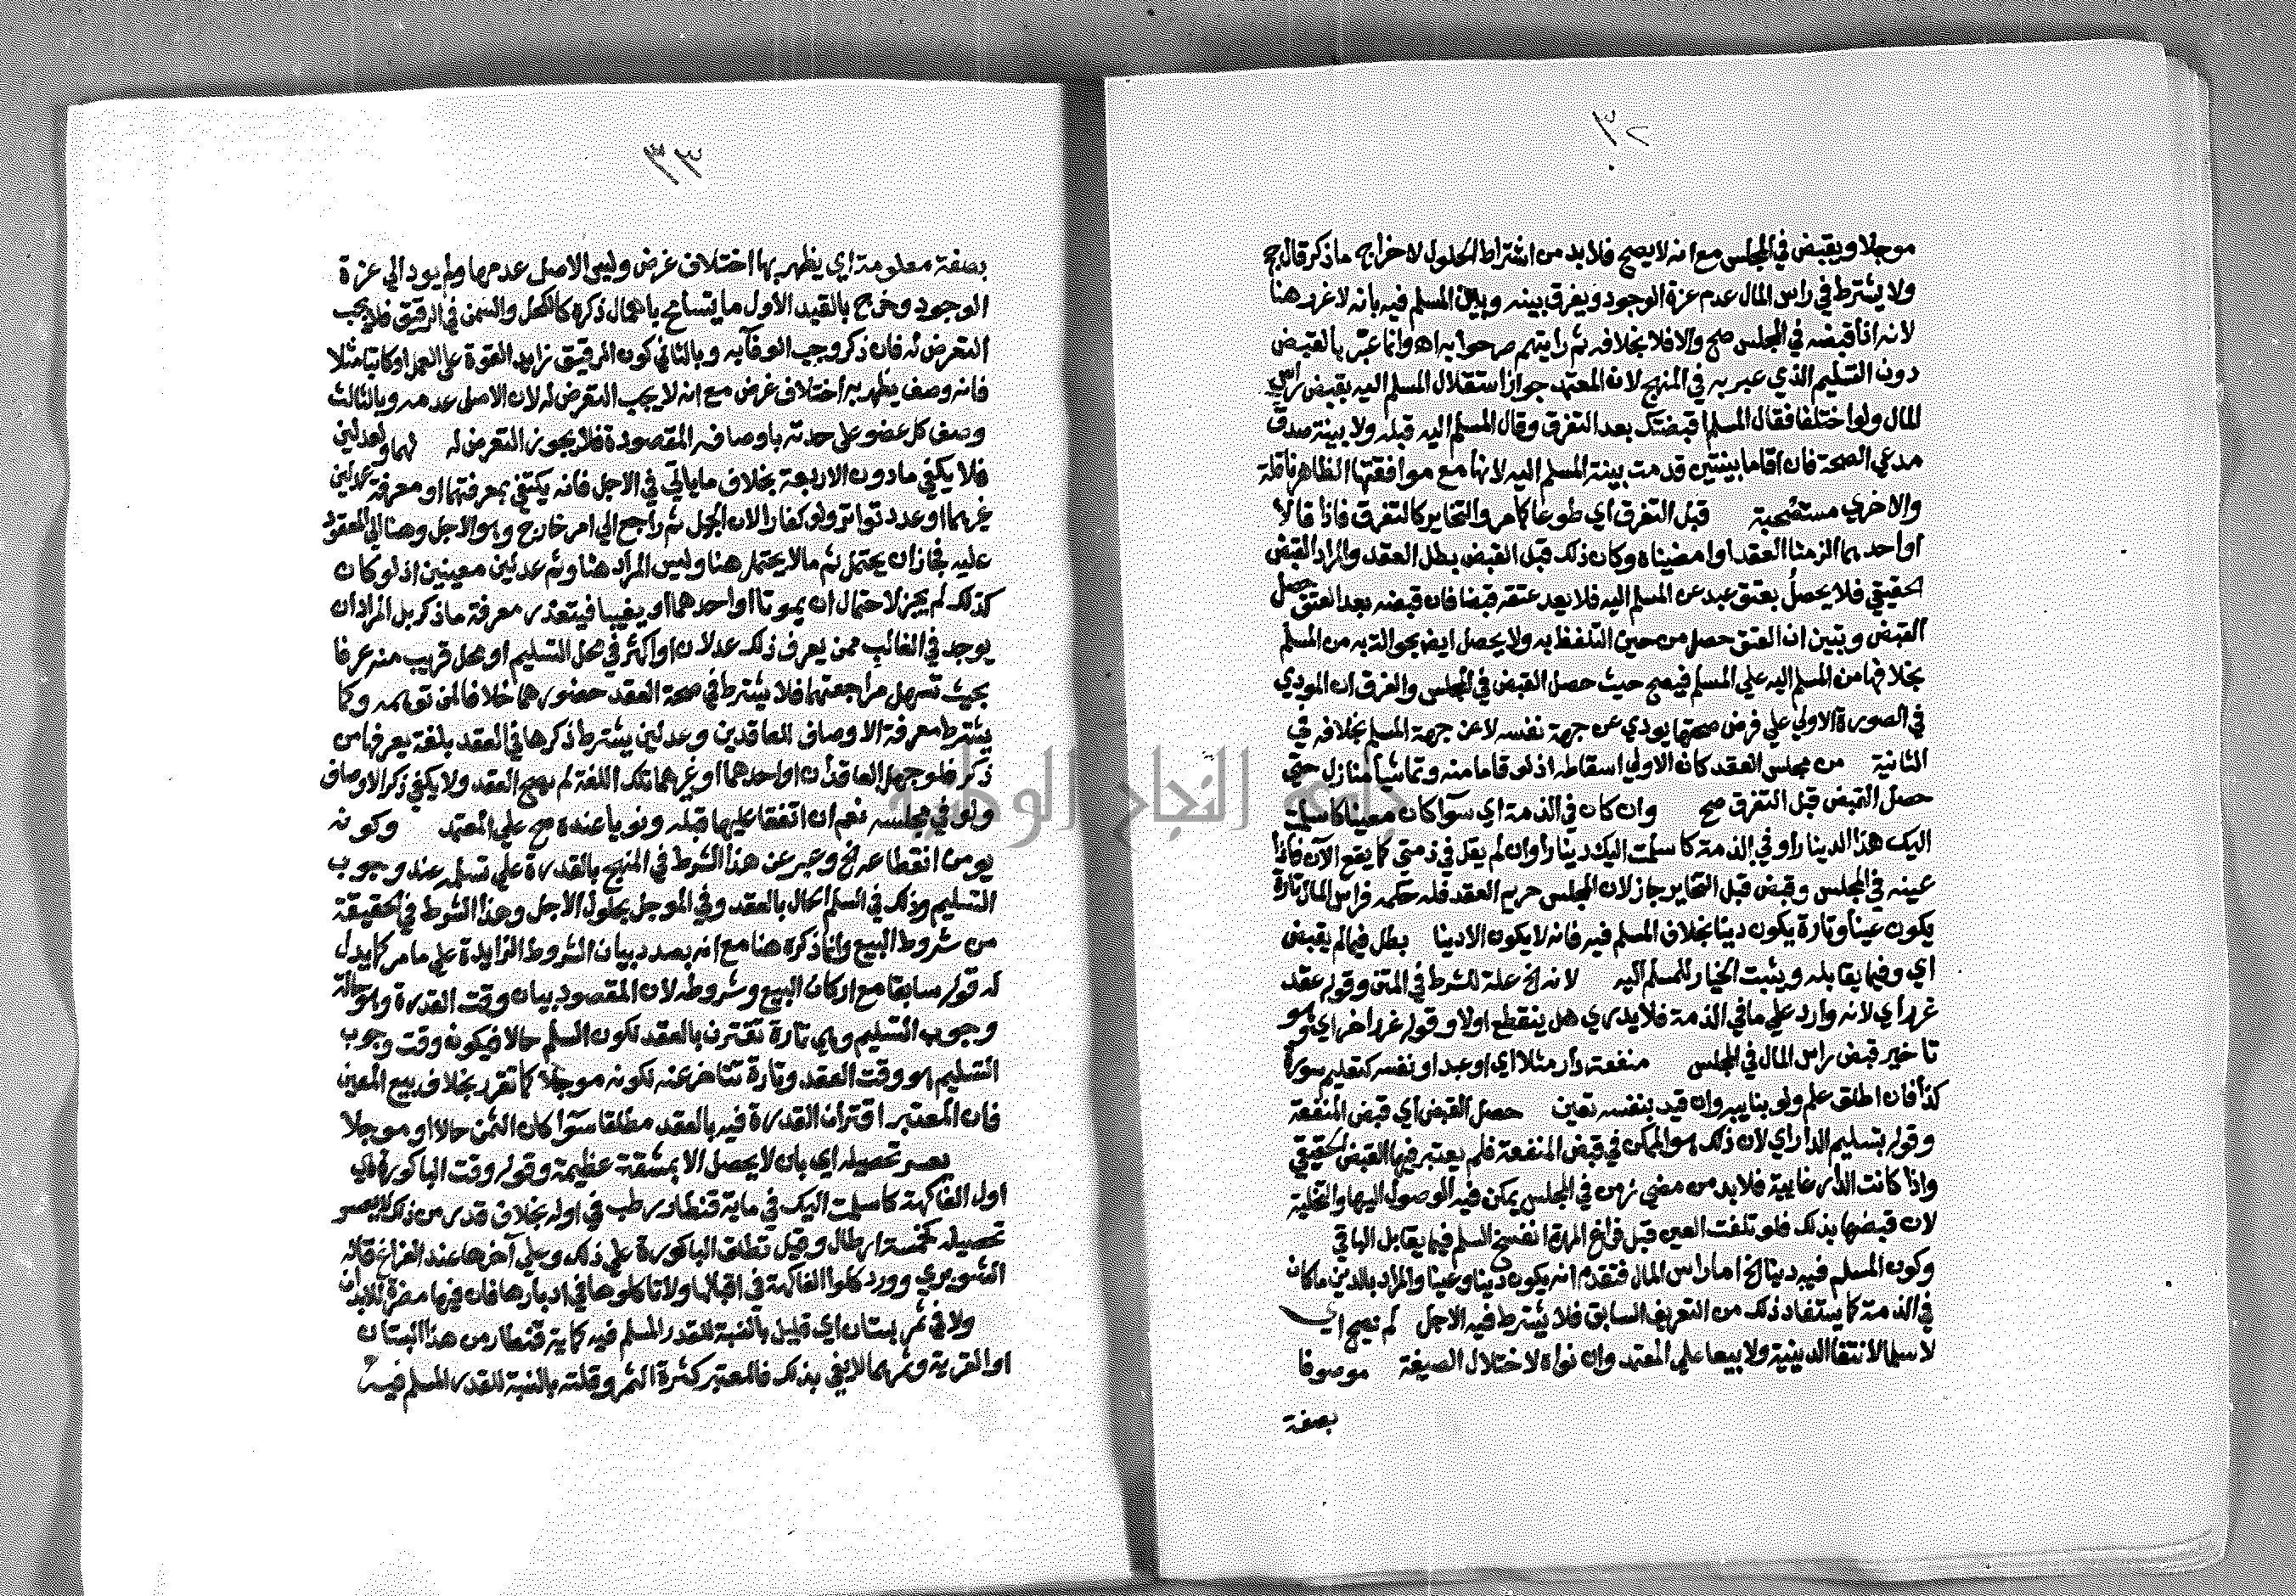 ٣٢
موجلا ويقبض في المجلس مع انه لا يصح فلا بد من اشتراط الحلول لاخراج ما ذكر قال حج
ولا يشترط في راس المال عدم عزة الوجود ويفرق بينه وبين المسلم فيه بانه لا غرر هنا
لانه اذا قبضه في المجلس صح والا فلا بخلافه ثم رايتهم صرحوا به اه وانما عبر بالقبض
دون التسليم الذي عبر به في المنهج لان المعتمد جواز استقلال المسلم اليه بقبض راس
المال ولو اختلفا فقال المسلم اقبضتك بعد التفرق وقال المسلم اليه قبله ولا بينة صدق
مدعي الصحة فان اقاما بينتين قدمت بينة المسلم اليه لانها مع موافقتها الظاهر ناقلة
والاخري مستصحبة قبل التفرق اي طوعا كما مر والتخاير كالتفرق فاذا قالا
او احدهما الزمنا العقد او امضيناه وكان ذلك قبل القبض بطل العقد والمراد القبض
الحقيقي فلا يحصل بعتق عبد عن المسلم اليه فلا يعد عتقه قبضا فان قبضه بعد العتق حصل
القبض وتبين ان العتق حصل من حين التلفظ به ولا يحصل ايض بحوالة به من المسلم
بخلافها من المسلم اليه علي المسلم فيصح حيث حصل القبض في المجلس والفرق ان المودي
في الصورة الاولي علي فرض صحتها يودي عن جهة نفسه لا عن جهة المسلم بخلافه في
الثانية من مجلس العقد كان الاولي اسقاطه اذ لو قاما منه وتماشيا منازل حتي
حصل القبض قبل التفرق صح وان كان في الذمة اي سوآ كان معينا كاسلمت
اليك هذا الدينار او في الذمة كاسلمت اليك دينارا وان لم يقل في ذمتي كما يقع الآن فاذا
عينه في المجلس وقبض قبل التخاير جاز لان المجلس حريم العقد فله حكمه فراس المال تارة
يكون عينا وتارة يكون دينا بخلاف المسلم فيه فانه لا يكون الا دينا بطل فيما لم يقبض
اي وفيما يقابله ويثبت الخيار للمسلم اليه لانه الخ علة للشرط في المتن وقوله عقد
غرر اي لانه وارد علي ما في الذمة فلا يدري هل ينقطع اولا وقوله غرر اخر اي وهو
تاخير قبض راس المال في المجلس منفعة دار مثلا اي او عبد او نفسه كتعليم سورة
كذا فان اطلق علم ولو بنايبه وان قيد بنفسه تعين حصل القبض اي قبض المنفعة
وقوله بتسليم الدار اي لان ذلك هو الممكن في قبض المنفعة فلم يعتبر فيها القبض الحقيقي
واذا كانت الدار غايبة فلا بد من مضي زمن في المجلس يمكن فيه الوصول اليها والتخلية
لان قبضها بذلك فلو تلفت العين قبل فراغ المدة انفسخ السلم فيما يقابل الباقي
وكون المسلم فيه دينا الخ اما راس المال فتقدم انه يكون دينا وعينا والمراد بالدين ما كان
في الذمة كما يستفاد ذلك من التعريف السابق فلا يشترط فيه الاجل لم يصح اي
لا سلما لانتفا الدينية ولا بيعا علي المعتمد وان نواه لاختلال الصيغة موصوفا
بصفة
٣٣
بصفة معلومة اي يظهر بها اختلاف غرض وليس الاصل عدمها ولم يود الي عزة
الوجود وخرج بالقيد الاول ما يتسامح باهمال ذكره كالكحل والسمن في الرقيق فلا يجب
التعرض له فان ذكر وجب الوفآ به وبالثاني كون الرقيق زايد القوة علي العمل او كاتبا مثلا
فانه وصف يظهر به اختلاف غرض مع انه لا يجب التعرض له لان الاصل عدمه وبالثالث
وصف كل عضو علي حدته باوصافه المقصودة فلا يجوز التعرض له لهما ولعدلين
فلا يكفي ما دون الاربعة بخلاف ما ياتي في الاجل فانه يكتفي بمعرفتهما او معرفة عدلين
غيرهما او عدد تواتر ولو كفارا لان الجهل ثم راجع الي امر خارج وهو الاجل وهنا الي المعقود
عليه فجاز ان يحتمل ثم ما لا يحتمل هنا وليس المراد هنا وثم عدلين معينين اذ لو كان
كذلك لم يجز لاحتمال ان يموتا او احدهما او يغيبا فيتعذر معرفة ما ذكر بل المراد ان
يوجد في الغالب ممن يعرف ذلك عدلان او اكثر في محل التسليم او محل قريب منه عرفا
بحيث تسهل مراجعتهما فلا يشترط في صحة العقد حضورهما خلافا لمن توهمه وكما
يشترط معرفة الاوصاف للعاقدين وعدلين يشترط ذكرها في العقد بلغة يعرفها من
ذكر فلو جهل العاقدان او احدهما او غيرهما تلك اللغة لم يصح العقد ولا يكفي ذكر الاوصاف
ولو في مجلسه نعم ان اتفقا عليها قبله ونويا عنده صح علي المعتمد وكونه
يومن انقطاعه الخ وعبر عن هذا الشرط في المنهج بالقدرة علي تسلمه عند وجوب
التسليم وذلك في السلم الحال بالعقد وفي الموجل بحلول الاجل وهذا الشرط في الحقيقة
من شروط البيع وانما ذكره هنا مع انه بصدد بيان الشروط الزايدة علي ما مر كما يدل
له قوله سابقا مع اركان البيع وشروطه لان المقصود بيان وقت القدرة وهو حالة
وجوب التسليم وهي تارة تقترن بالعقد لكون السلم حالا فيكون وقت وجوب
التسليم هو وقت العقد وتارة تتاخر عنه لكونه موجلا كما تقرر بخلاف بيع المعين
فان المعتبر اقتران القدرة فيه بالعقد مطلقا سوآ كان الثمن حالا او موجلا
يعسر تحصيله اي بان لا يحصل الا بمشقة عظيمة وقوله وقت الباكورة اي
اول الفاكهة كاسلمت اليك في ماية قنطار رطب في اوله بخلاف قدر من ذلك لا يعسر
تحصيله كخمسة ارطال وقيل تطلق الباكورة علي ذلك وعلي آخرها عند الفراغ قاله
الشوبري وورد كلوا الفاكهة في اقبالها ولا تاكلوها في ادبارها فان فيها مضرة للابدان
ولا في ثمر بستان اي قليل بالنسبة للقدر المسلم فيه كماية قنطار من هذا البستان
او القرية وثمرهما لا يفي بذلك فالمعتبر كثرة الثمر وقلته بالنسبة للقدر المسلم فيه